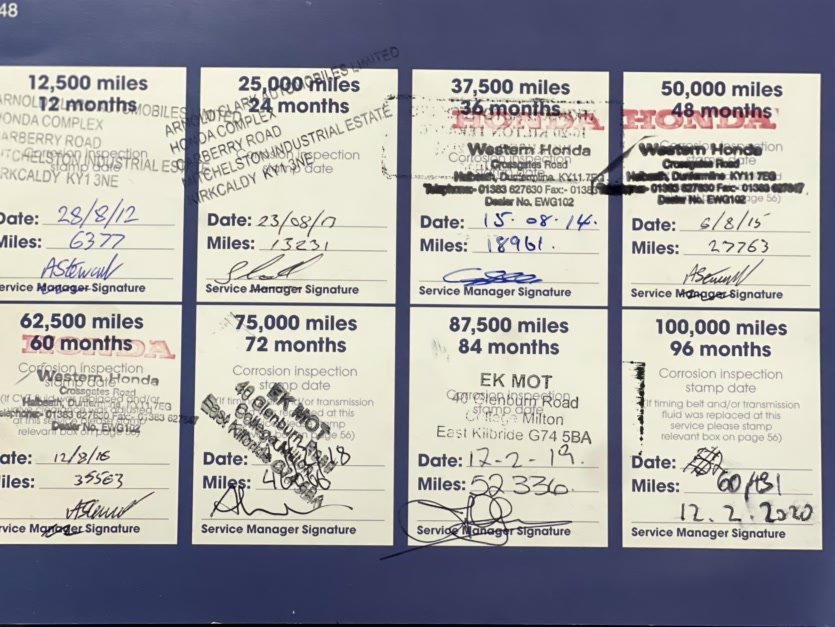 48
12,500 miles
12 months
ARNOLD CLARK AUTOMOBILES LIMITED
HONDA COMPLEX
CARBERRY ROAD
MITCHELSTON INDUSTRIAL ESTATE
KIRKCALDY KY1 3NE
Corrosion inspection
stamp date
Date: 28/8/12
Miles: 6377
AStewart
Service Manager Signature
25,000 miles
24 months
ARNOLD CLARK AUTOMOBILES LIMITED
HONDA COMPLEX
CARBERRY ROAD
MITCHELSTON INDUSTRIAL ESTATE
KIRKCALDY KY1 3NE
Date: 23/08/
Miles: 13231
Service Manager Signature
37,500 miles
36 months
HONDA
Western Honda
Crossgates Road
Halbeath, Dunfermline KY11 7EG
Telephone:- 01383 627630 Fax:- 01383
Dealer No. EWG102
Date: 15.08.14.
Miles: 18961.
Service Manager Signature
50,000 miles
48 months
HONDA
Corrosion inspection
Western Honda
Crossgates Road
Halbeath, Dunfermline KY11 7EG
Telephone:- 01383 627630 Fax:- 01383 627647
Dealer No. EWG102
page 56)
Date: 6/8/15
Miles: 27763
Service Manager Signature
62,500 miles
60 months
HONDA
Corrosion inspection
stamp date
Western Honda
Crossgates Road
Halbeath, Dunfermline KY11 7EG
Telephone:- 01383 627630 Fax:- 01383 627647
Dealer No. EWG102
relevant box on page 56)
Date: 12/8/16
Miles: 35563
AStewart
Service Manager Signature
75,000 miles
72 months
Corrosion inspection
stamp date
EK MOT
40 Glenburn Road
College Milton
East Kilbride G74 5BA
Date: 18
Miles:
Service Manager Signature
87,500 miles
84 months
EK MOT
Corrosion inspection
40 Glenburn Road
stamp date
College Milton
East Kilbride G74 5BA
Date: 12-2-19.
Miles: 52336.
Service Manager Signature
100,000 miles
96 months
Corrosion inspection
stamp date
(If timing belt and/or transmission
fluid was replaced at this
service please stamp
relevant box on page 56)
Date:
Miles: 60/131
12.2.2020
Service Manager Signature